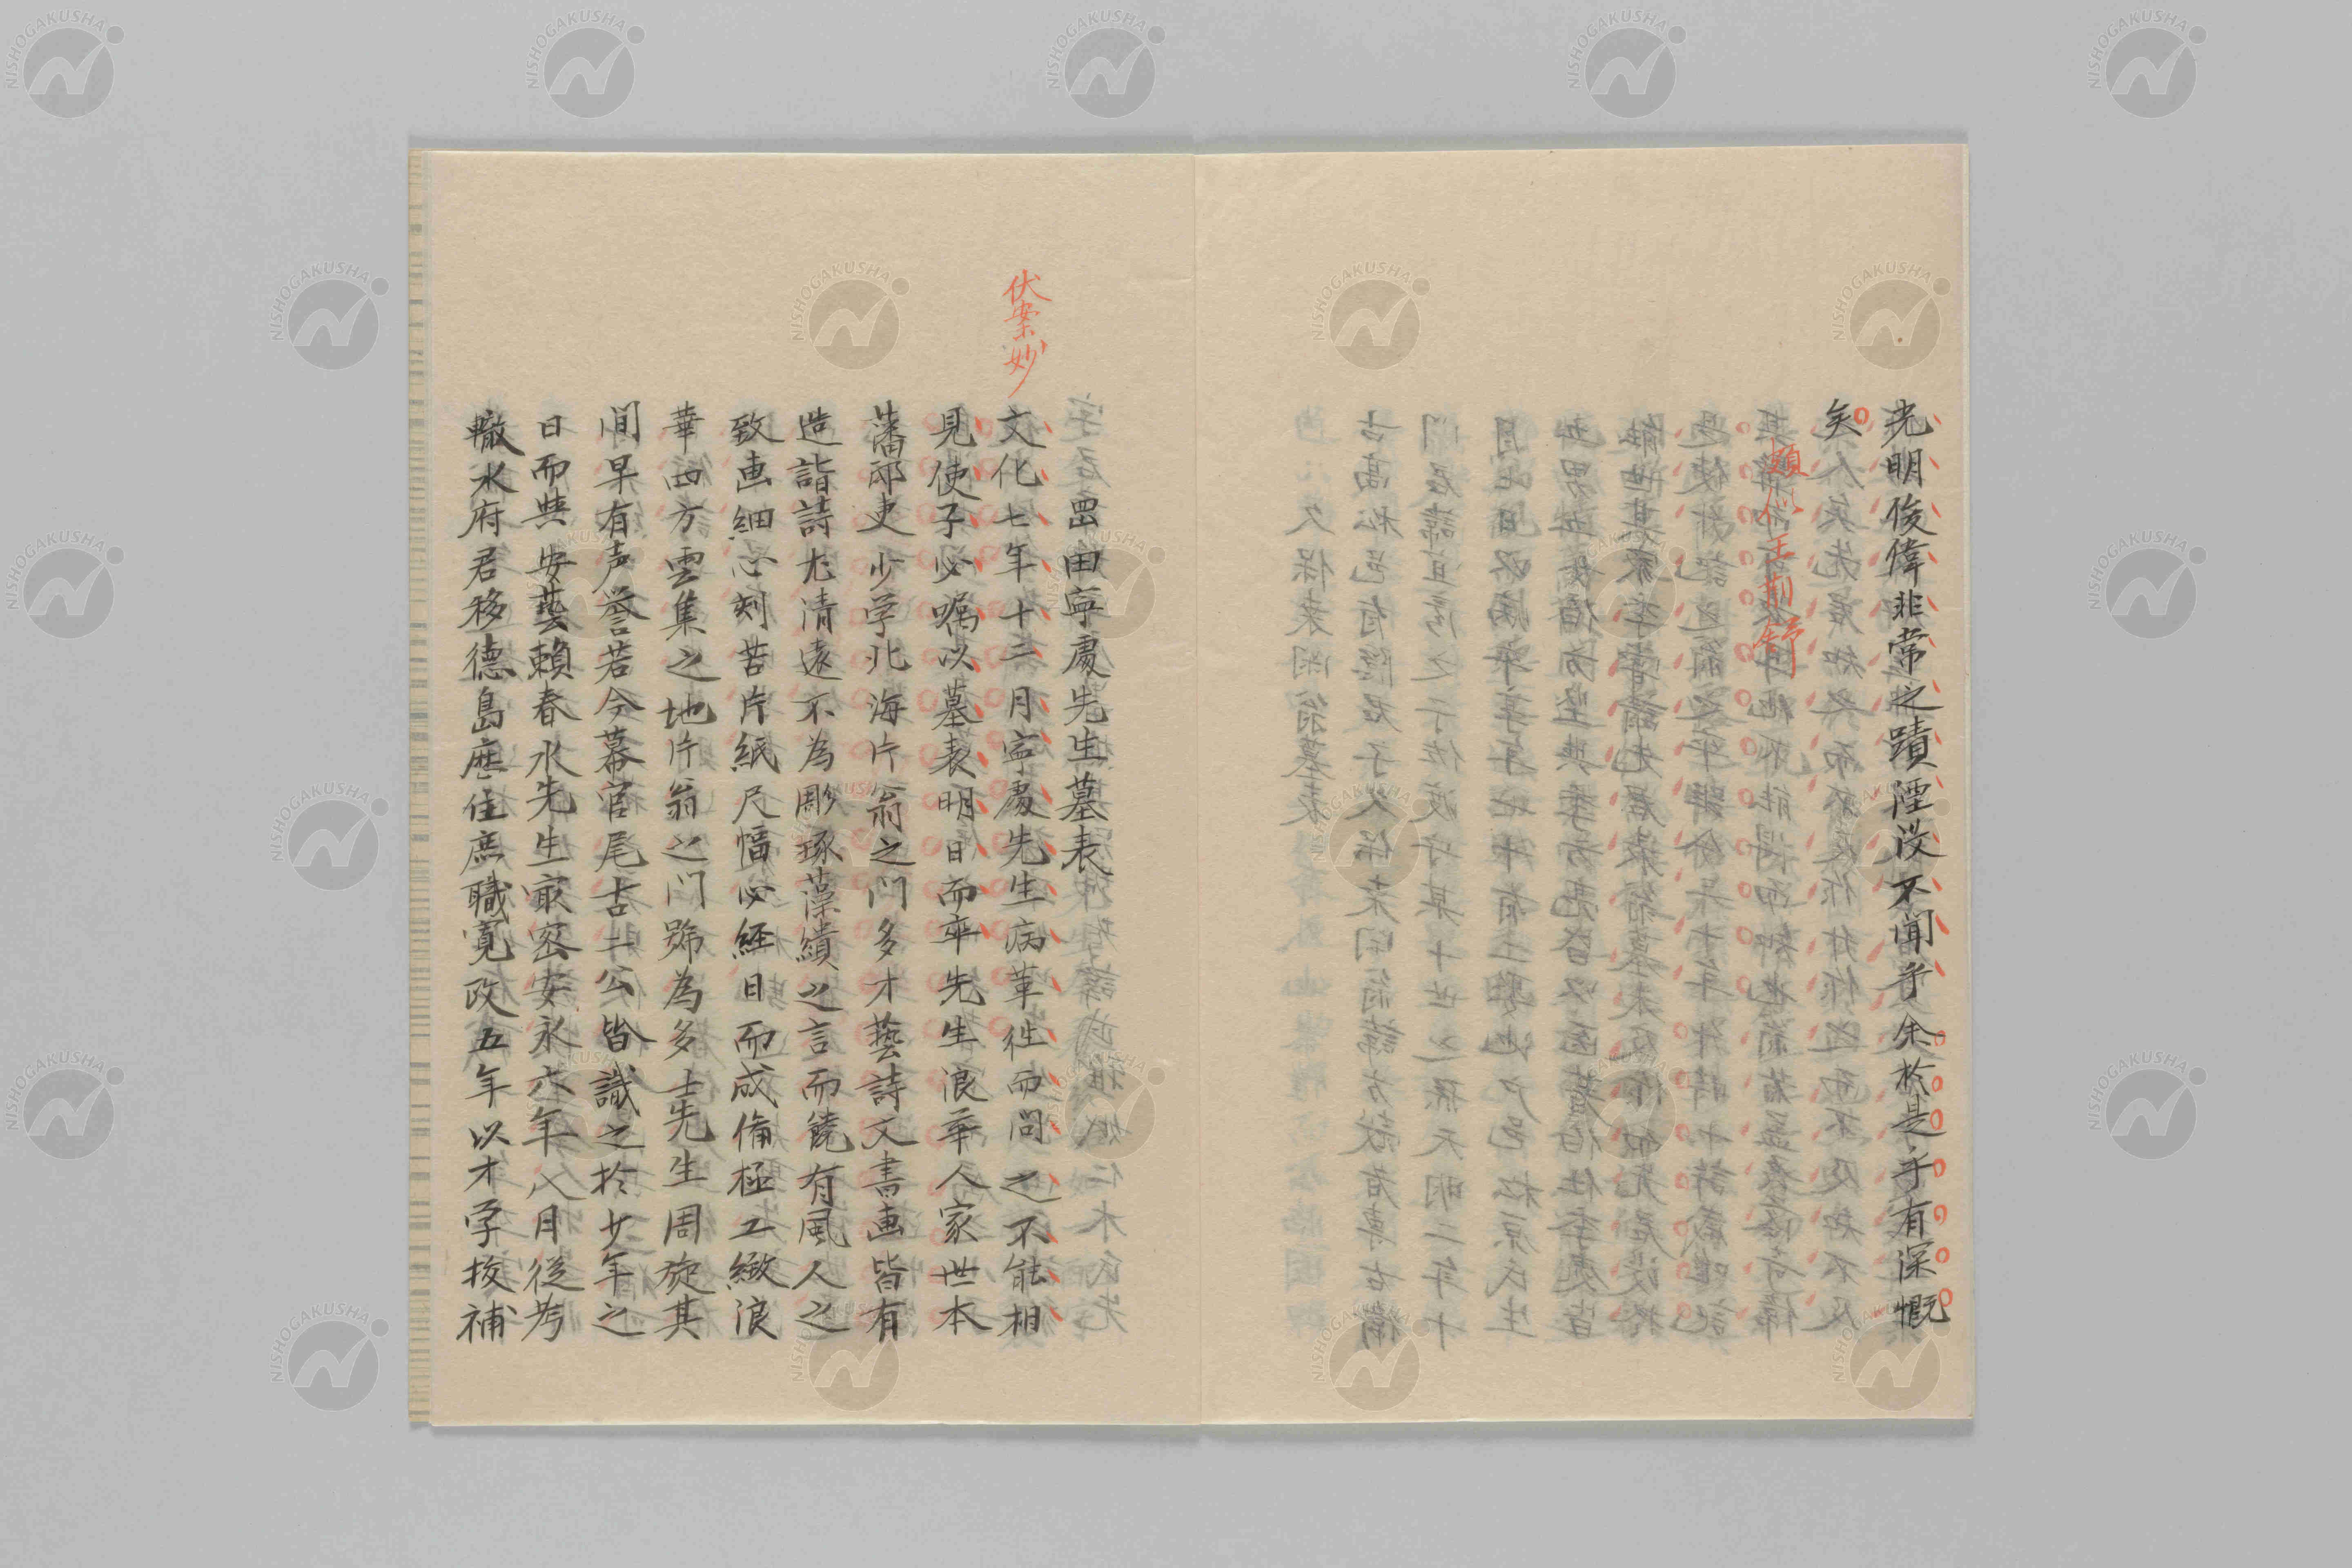 光明俊偉非常之蹟湮没不聞乎余於是乎有深慨
矣
題似王荊舒
岡田寧處先生墓表
伏案妙
文化七年十三月寧處先生病革徃而問之不能相
見使子必嘱以墓表明日而卒先生浪華人家世本
藩邸吏少学北海片翁之門多才藝詩文書画皆有
造詣詩尤清遠不為彫琢藻繢之言而饒有風人之
致画細心刻苦片紙尺幅必経日而成備極工緻浪
華四方雲集之地片翁之門號為多士先生周旋其
間早有声誉若今幕官尾古二公皆識之於廿年之
日而與安藝賴春水先生㝡密安永六年八月従考
轍水府君移德島庶住庶職寛政五年以才学擢補
NISHOGAKUSHA